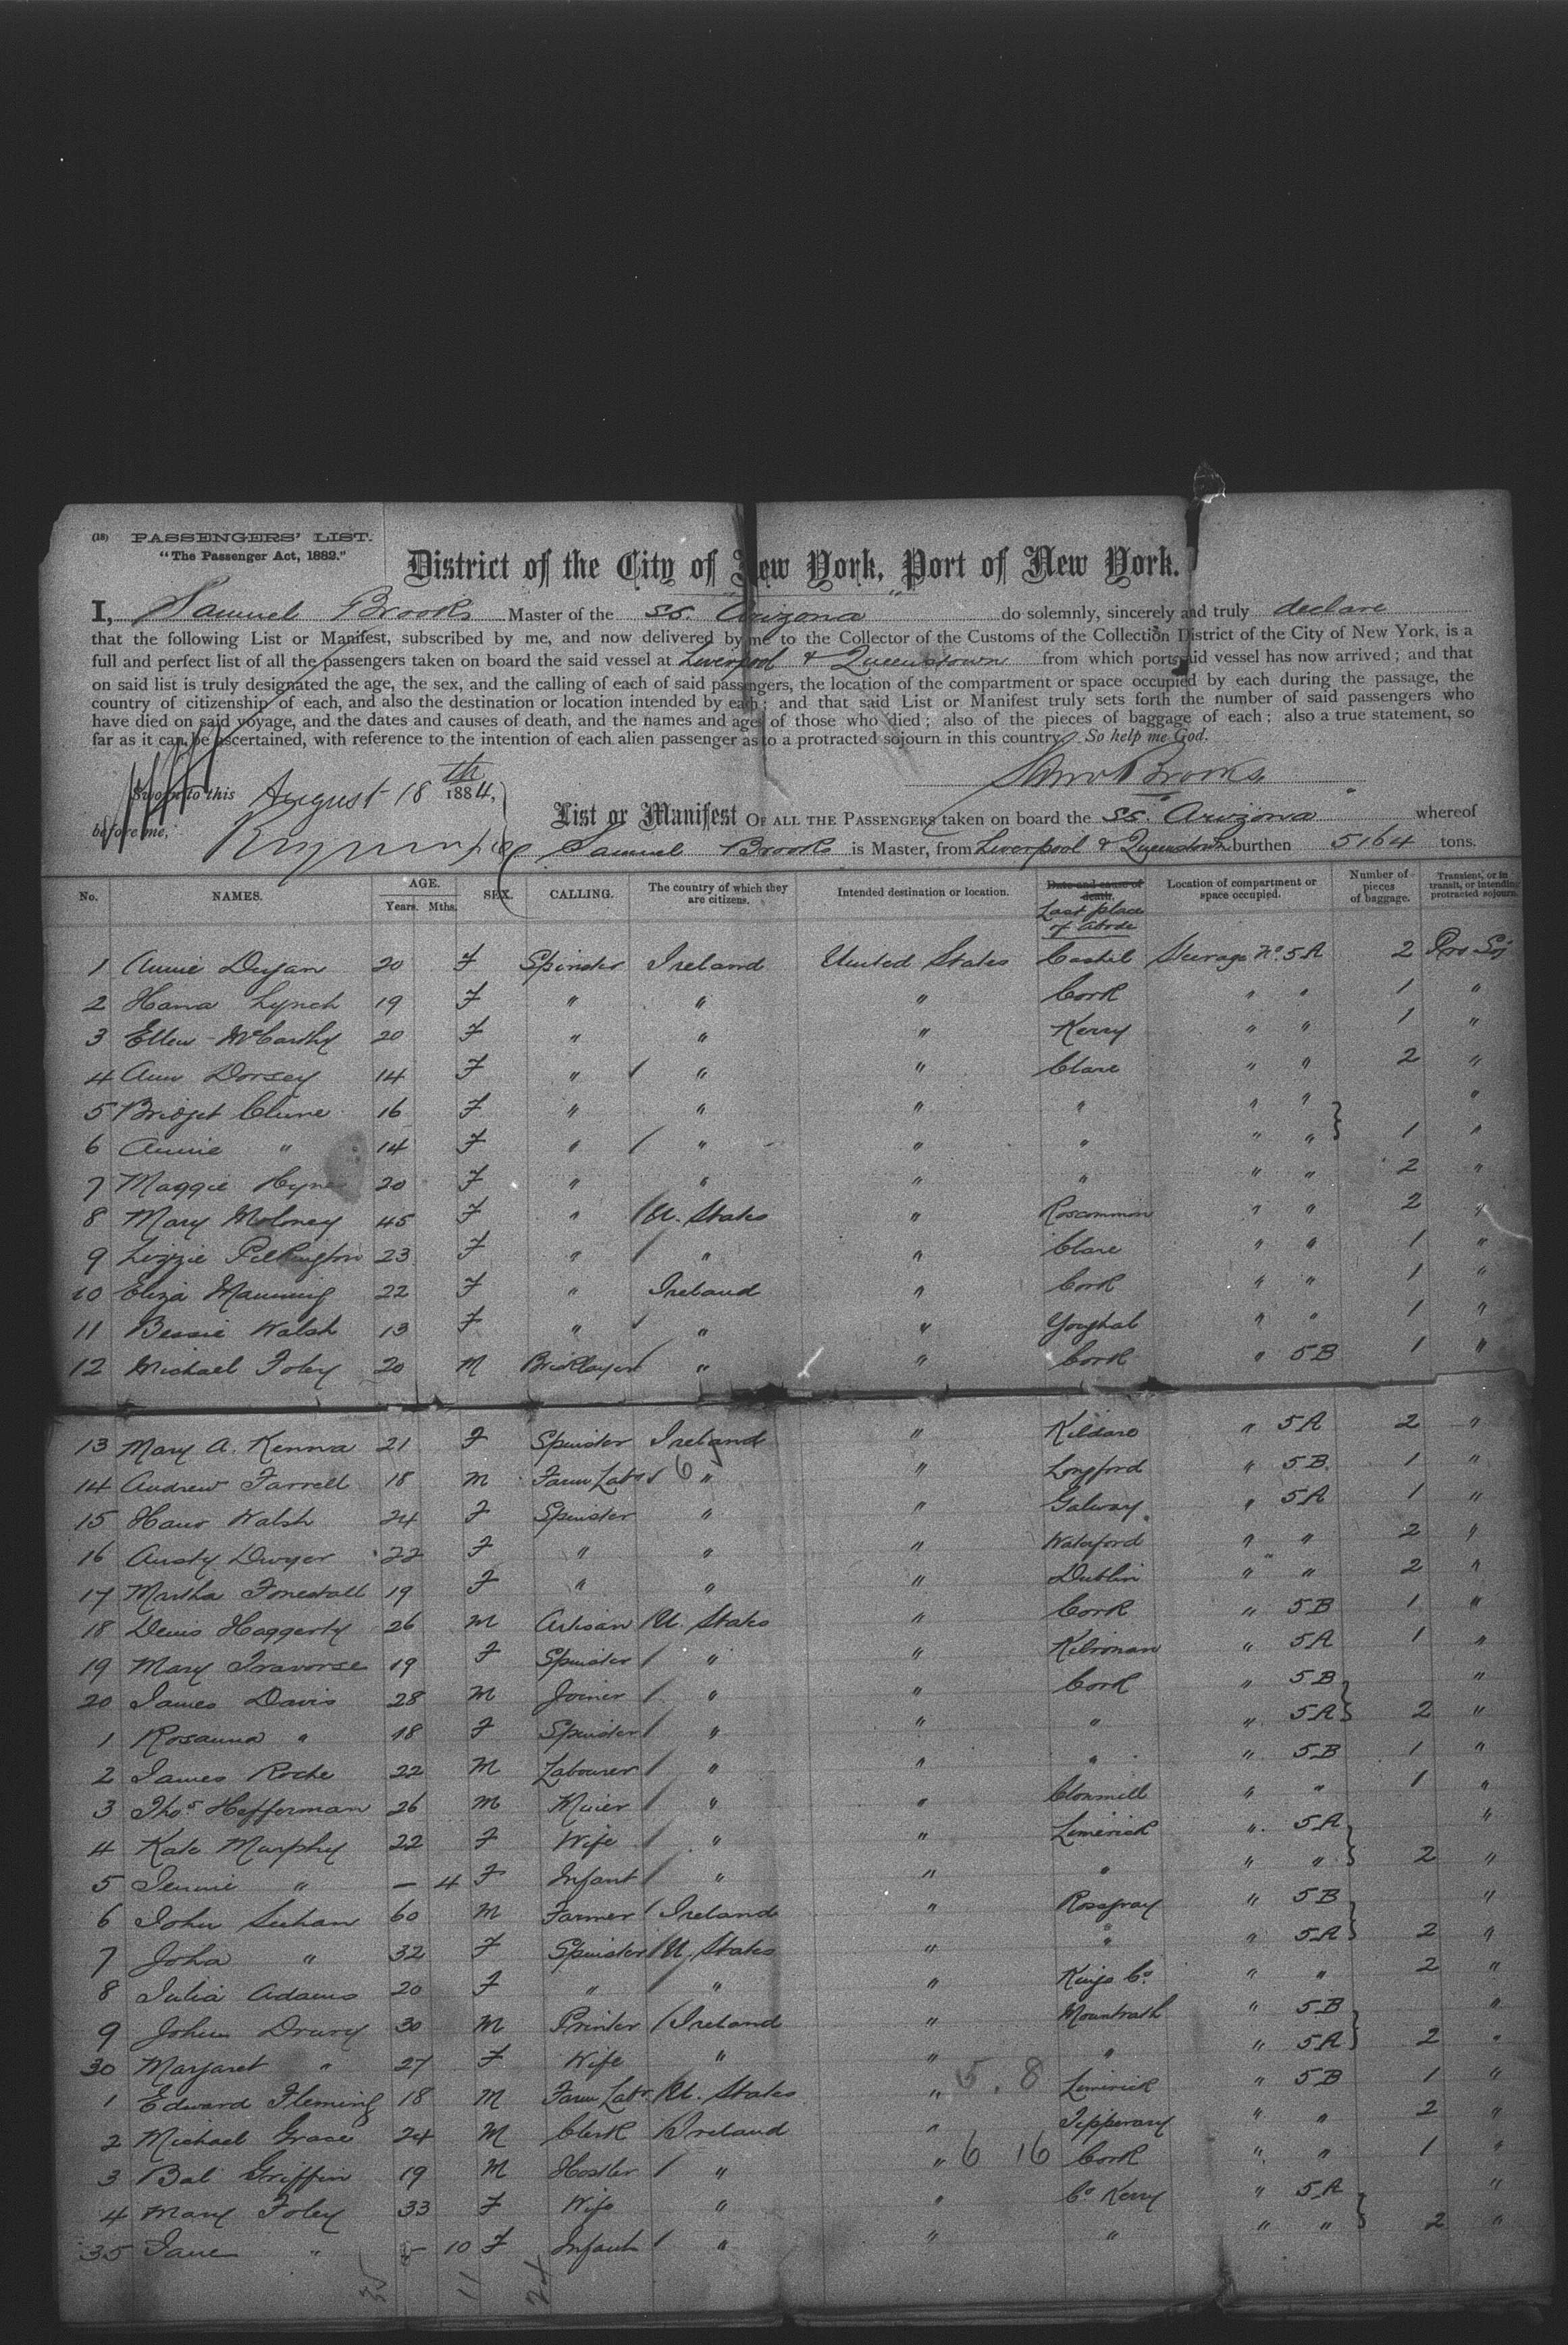 (18) PASSENGERS' LIST.
"The Passenger Act, 1882."
District of the City of New York, Port of New York.
I, Samuel Brooks Master of the SS. Arizona do solemnly, sincerely and truly declare
that the following List or Manifest, subscribed by me, and now delivered by me to the Collector of the Customs of the Collection District of the City of New York, is a
full and perfect list of all the passengers taken on board the said vessel at Liverpool & Queenstown from which port said vessel has now arrived; and that
on said list is truly designated the age, the sex, and the calling of each of said passengers, the location of the compartment or space occupied by each during the passage, the
country of citizenship of each, and also the destination or location intended by each; and that said List or Manifest truly sets forth the number of said passengers who
have died on said voyage, and the dates and causes of death, and the names and ages of those who died; also of the pieces of baggage of each; also a true statement, so
far as it can be ascertained, with reference to the intention of each alien passenger as to a protracted sojourn in this country. So help me God.
Saml Brooks
Sworn to this August 18th 1884,
before me,
List or Manifest OF ALL THE PASSENGERS taken on board the SS. Arizona whereof
Samuel Brooks is Master, from Liverpool & Queenstown burthen 5164 tons.
No. NAMES. AGE. Years. Mths. SEX. CALLING. The country of which they are citizens. Intended destination or location. Date and cause of death. Last place of abode Location of compartment or space occupied. Number of pieces of baggage. Transient, or in transit, or intending protracted sojourn.
1 Annie Dugan 20 F Spinster Ireland United States Cashel Steerage No. 5A 2 Pro Soj
2 Hana Lynch 19 F " " " Cork " " 1 "
3 Ellen McCarthy 20 F " " " Kerry " " 1 "
4 Ann Dorsey 14 F " " " Clare " " 2 "
5 Bridget Clune 16 F " " " " " " "
6 Annie " 14 F " " " " " " 1 "
7 Maggie Hyne 20 F " " " " " " 2 "
8 Mary Moloney 45 F " U. States " Roscommon " " 2 "
9 Lizzie Pilkington 23 F " " " Clare " " 1 "
10 Eliza Manning 22 F " Ireland " Cork " " 1 "
11 Bessie Walsh 13 F " " " Youghal " " 1 "
12 Michael Foley 20 M Bricklayer " " Cork " 5B 1 "
13 Mary A. Kenna 21 F Spinster Ireland " Kildare " 5A 2 "
14 Andrew Farrell 18 M Farm Labr 6 " " Longford " 5B 1 "
15 Hano Walsh 24 F Spinster " " Galway " 5A 1 "
16 Austy Dwyer 22 F " " " Waterford " " 2 "
17 Martha Forestall 19 F " " " Dublin " " 2 "
18 Denis Haggerty 26 M Artisan U. States " Cork " 5B 1 "
19 Mary Travorse 19 F Spinster " " Kilronan " 5A 1 "
20 James Davis 28 M Joiner " " Cork " 5B "
1 Rosanna " 18 F Spinster " " " " 5A 2 "
2 James Roche 22 M Labourer " " " " 5B 1 "
3 Thos Hefferman 26 M Miner " " Clonmell " " 1 "
4 Kate Murphy 22 F Wife " " Limerick " 5A "
5 Jennie " — 4 F Infant " " " " " 2 "
6 John Sechan 60 M Farmer Ireland " " 5B "
7 Joha " 32 F Spinster U. States " " " 5A 2 "
8 Julia Adams 20 F " " " Kings Co. " " 2 "
9 John Drury 30 M Printer Ireland " Mountrath " 5B "
30 Margaret " 27 F Wife " " " " 5A 2 "
1 Edward Fleming 18 M Farm Labr U. States " 5. 8 Limerick " 5B 1 "
2 Michael Grace 24 M Clerk Ireland " Tipperary " " 2 "
3 Bat Griffin 19 M Hostler " " 6 16 Cork " " 1 "
4 Mary Foley 33 F Wife " " Co Kerry " 5A "
35 Jane " — 10 F Infant " " " " " 2 "
35 11 24